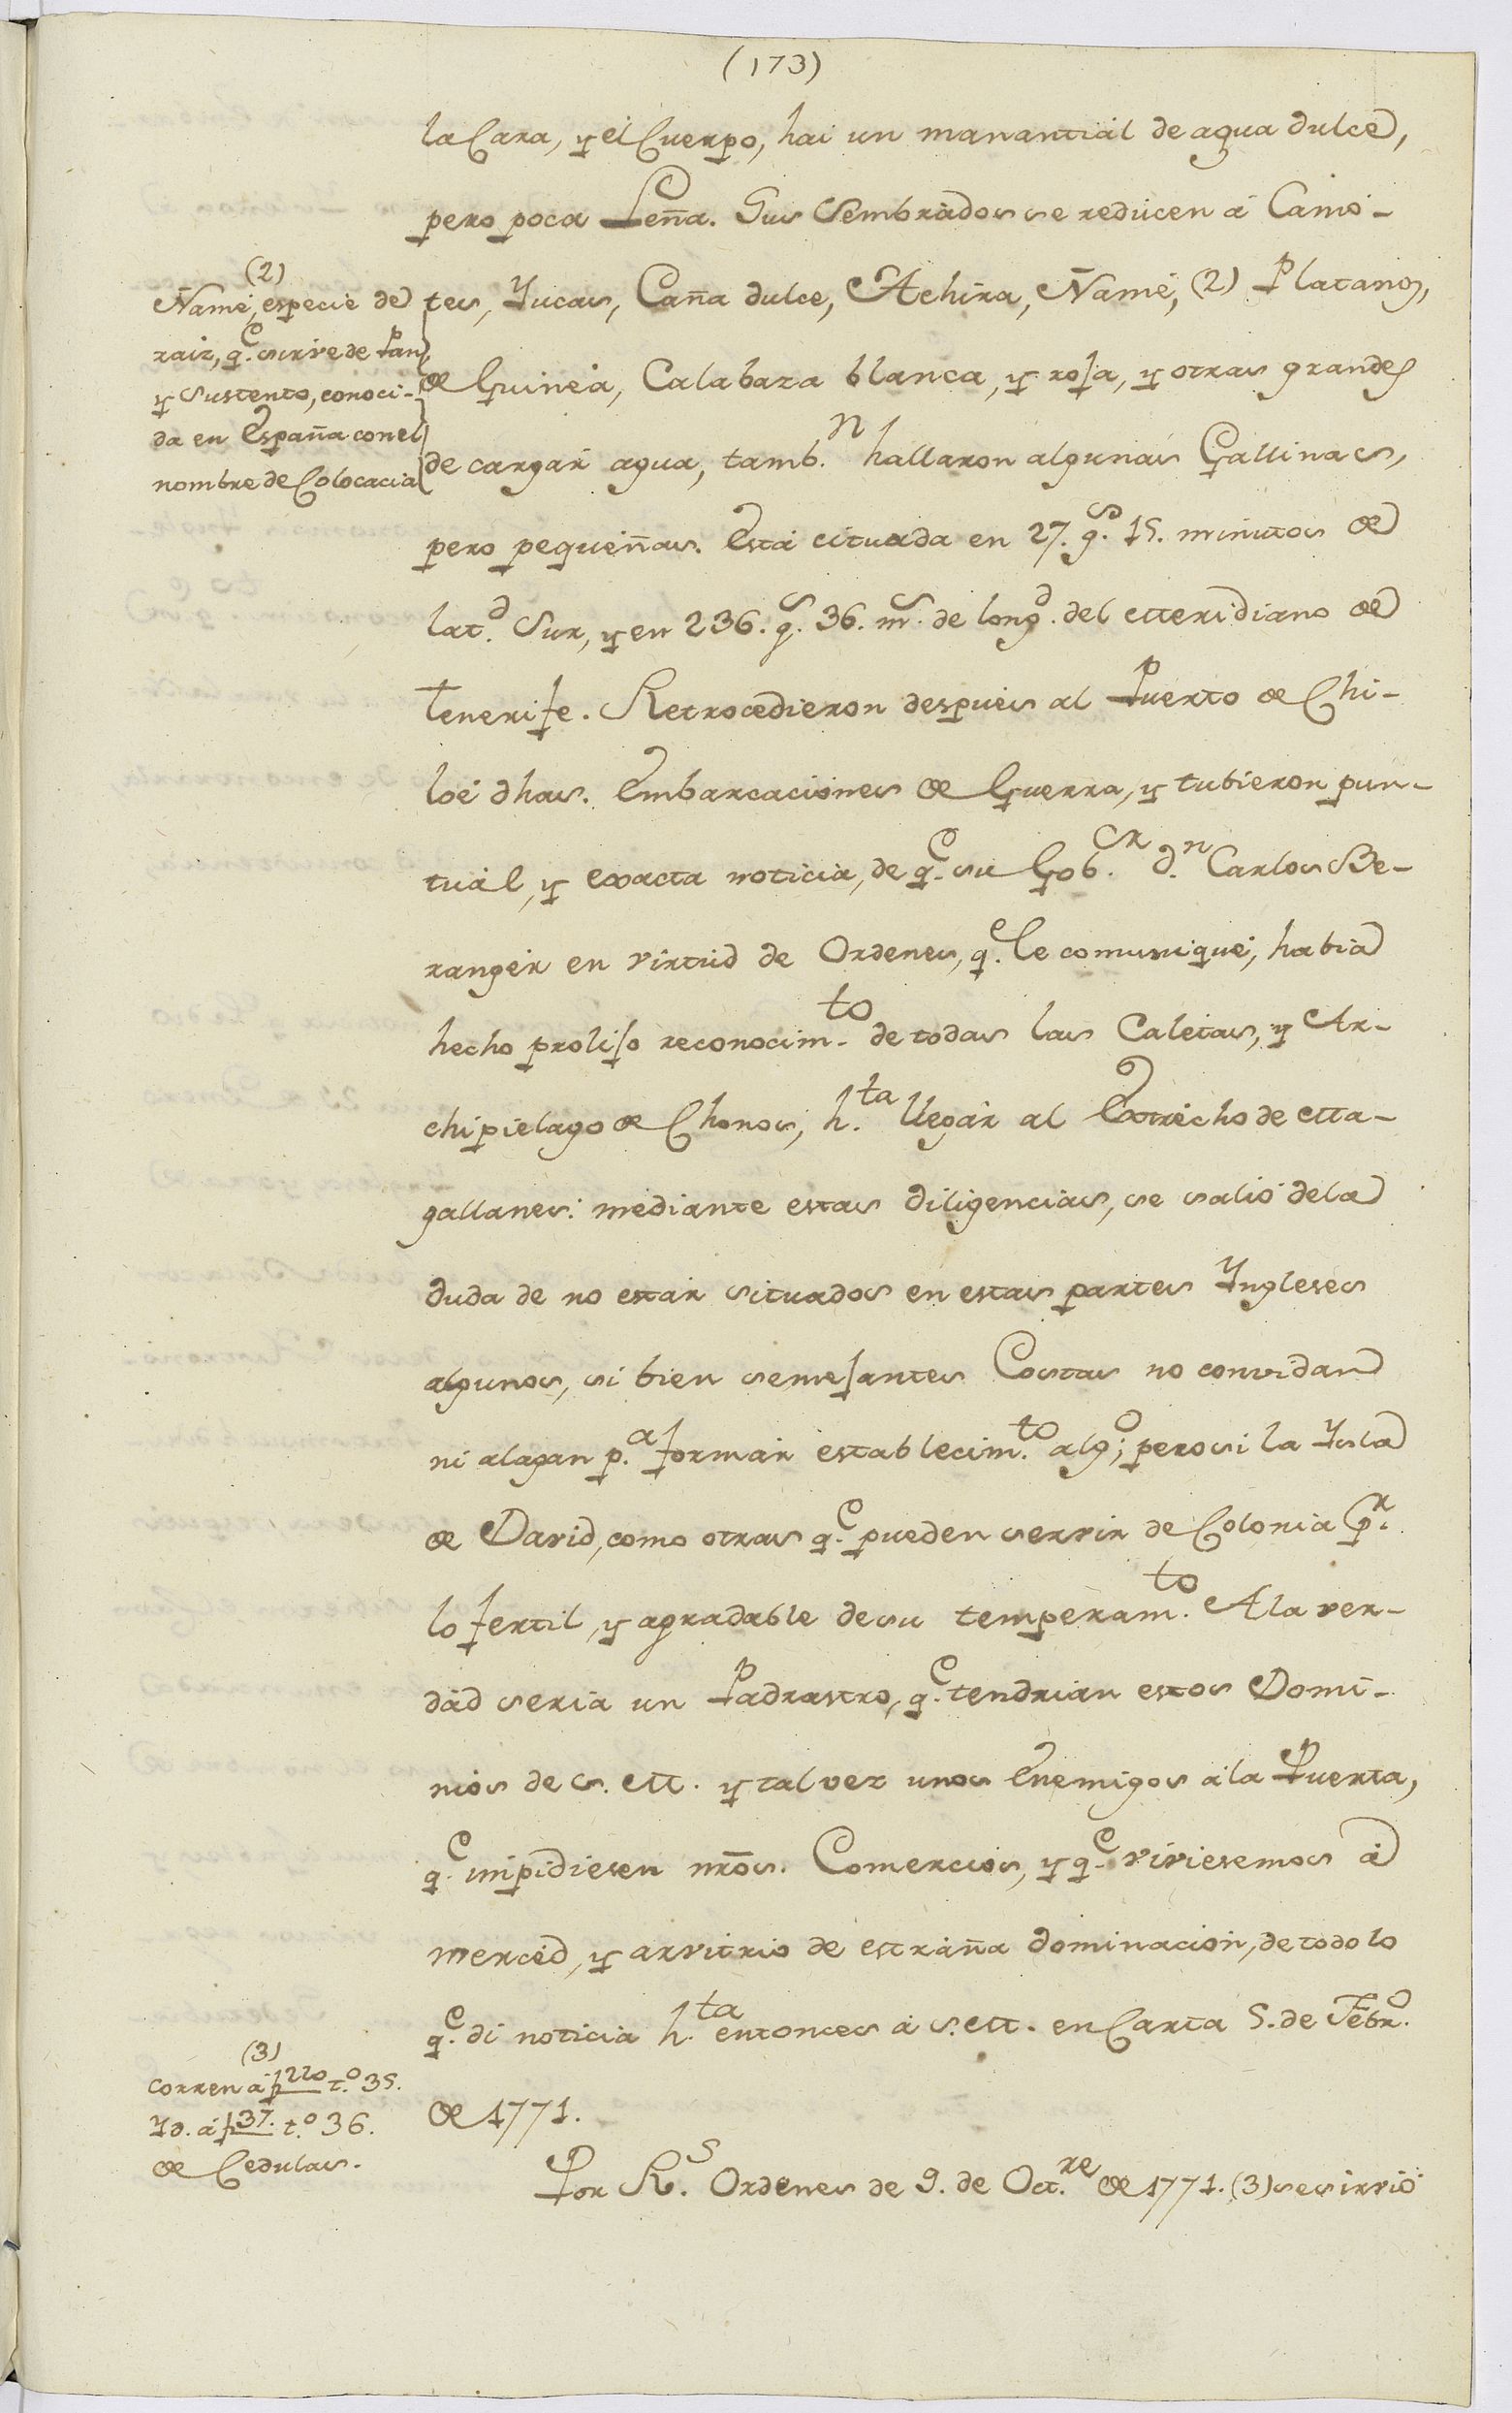 (173)
la Cara, y el Cuerpo, hai un manantial de agua dulce,
pero poca Leña. Sus Sembrados se reducen á Camo-
tes, Yucas, Caña dulce, Achira, Ñame, (2) Platanos,
de Guinea, Calabaza blanca, y roja, y otras grandes
de cargar agua, tamb.n hallaron algunas Gallinas,
pero pequeñas. Está cituada en 27. g.s 15. minutos de
lat.d Sur, y en 236. g.s 36. m.s de long.d del Meridiano de
Tenerife. Retrocedieron despues al Puerto de Chi-
loé dhas. Embarcaciones de Guerra, y tubieron pun-
tual, y exacta noticia, de q.e su Gob.er d.n Carlos Be-
ranger en virtud de Ordenes, q.e le comuniqué, habia
hecho prolijo reconocim.to de todas las Caletas, y Ar-
chipielago de Chonos, h.ta llegar al Extrecho de Ma-
gallanes: mediante estas diligencias, se salió de la
duda de no estar situados en estas partes Yngleses
algunos, si bien semejantes Costas no convidan
ni alagan p.a formar establecim.to alg.o; pero si la Ysla
de David, como otras q.e pueden servir de Colonia p.r
lo fertil, y agradable de su temperam.to A la ver-
dad seria un Padrastro, q.e tendrian estos Domi-
nios de S. M. y tal vez unos Enemigos á la Puerta,
q.e impidiesen nros. Comercios, y q.e viviesemos á
merced, y arvitrio de estraña dominacion, de todo lo
q.e di noticia h.ta entonces á S. M. en Carta 5. de Febr.o
de 1771.
Por R.s Ordenes de 9. de Oct.re de 1771. (3) se sirvió
(2)
Ñame, especie de
raiz, q.e sirve de Pan,
y Sustento, conoci-
da en España con el
nombre de Colocacia
(3)
Corren á f 220 t.o 35.
Yd. á f 37. t.o 36.
de Cedulas.